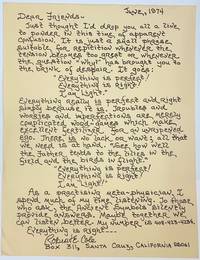 June, 1974
Dear Friends—
Just thought I'd drop you all a line
to ponder in this time of apparent
confusion. It is just a small phrase,
suitable for repetition whenever the
tension becomes too great or whenever
the question "why" has brought you to
the brink of despair. It goes:
"Everything is perfect!
Everything is Right!
I am Light."
Everything really is perfect and right
simply because it is. Troubles and
worries and imperfections are merely
complicated word-games which make
excellent fertilizer for an unripened
ego. There is no lack or want; all that
we need is at hand. "See how well
the Father tends to the lilies in the
field and the birds in flight."
"Everything is perfect!
Everything is Right!
I am Light!"
As a practising meta-physician, I
spend much of my time listening. To those
who ask, the Holiest Symbols silently
provide answers. Maybe together we
can listen better. My number is
Everything is Right—
Box 314, Santa Cruz, California 95061